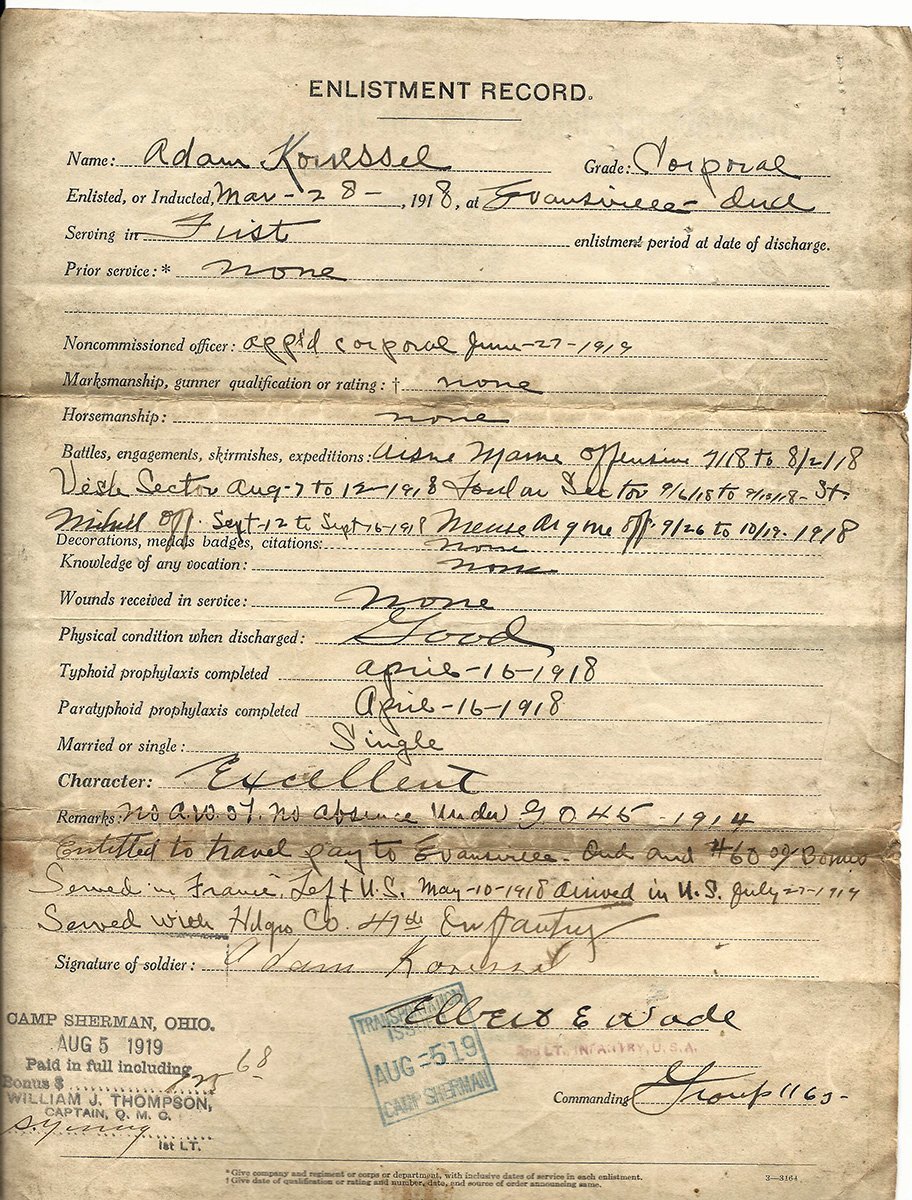 ENLISTMENT RECORD.
Name: Adam Konessel Grade: Corporal
Enlisted, or Inducted, Mar-28-, 1918, at Evansville- Ind
Serving in First enlistment period at date of discharge.
Prior service:* none
Noncommissioned officer: app'd corporal June-27-1919
Marksmanship, gunner qualification or rating: † none
Horsemanship: none
Battles, engagements, skirmishes, expeditions: Aisne Marne offensive 7/18 to 8/2/18
Vesle Sector Aug-7 to 12-1918 Toulon Sector 9/6/18 to St.
Mihiel off. Sept-12 to Sept-16-1918 Meuse Argone off. 9/26 to 10/19. 1918
Decorations, medals badges, citations: none
Knowledge of any vocation: none
Wounds received in service: none
Physical condition when discharged: Good
Typhoid prophylaxis completed april-16-1918
Paratyphoid prophylaxis completed April-16-1918
Married or single: Single
Character: Excellent
Remarks: no A.W.O.L. no absence under G O 45 - 1914
Entitled to travel pay to Evansville- Ind and $60 Bonus
Served in France, Left U.S. May-10-1918 arrived in U.S. July-27-1919
Served with Hdqrs Co. 47th Infantry
Signature of soldier: Adam
Elbert E Wade
2nd LT. INFANTRY, U.S.A.
Commanding Group 1163-
CAMP SHERMAN, OHIO.
AUG 5 1919
Paid in full including
Bonus $ 68
WILLIAM J. THOMPSON,
CAPTAIN, Q. M. C.
1st LT.
TRANSPORTATION
AUG -5 19
CAMP SHERMAN
*Give company and regiment or corps or department, with inclusive dates of service in each enlistment.
†Give date of qualification or rating and number, date, and source of order announcing same.
3—3164